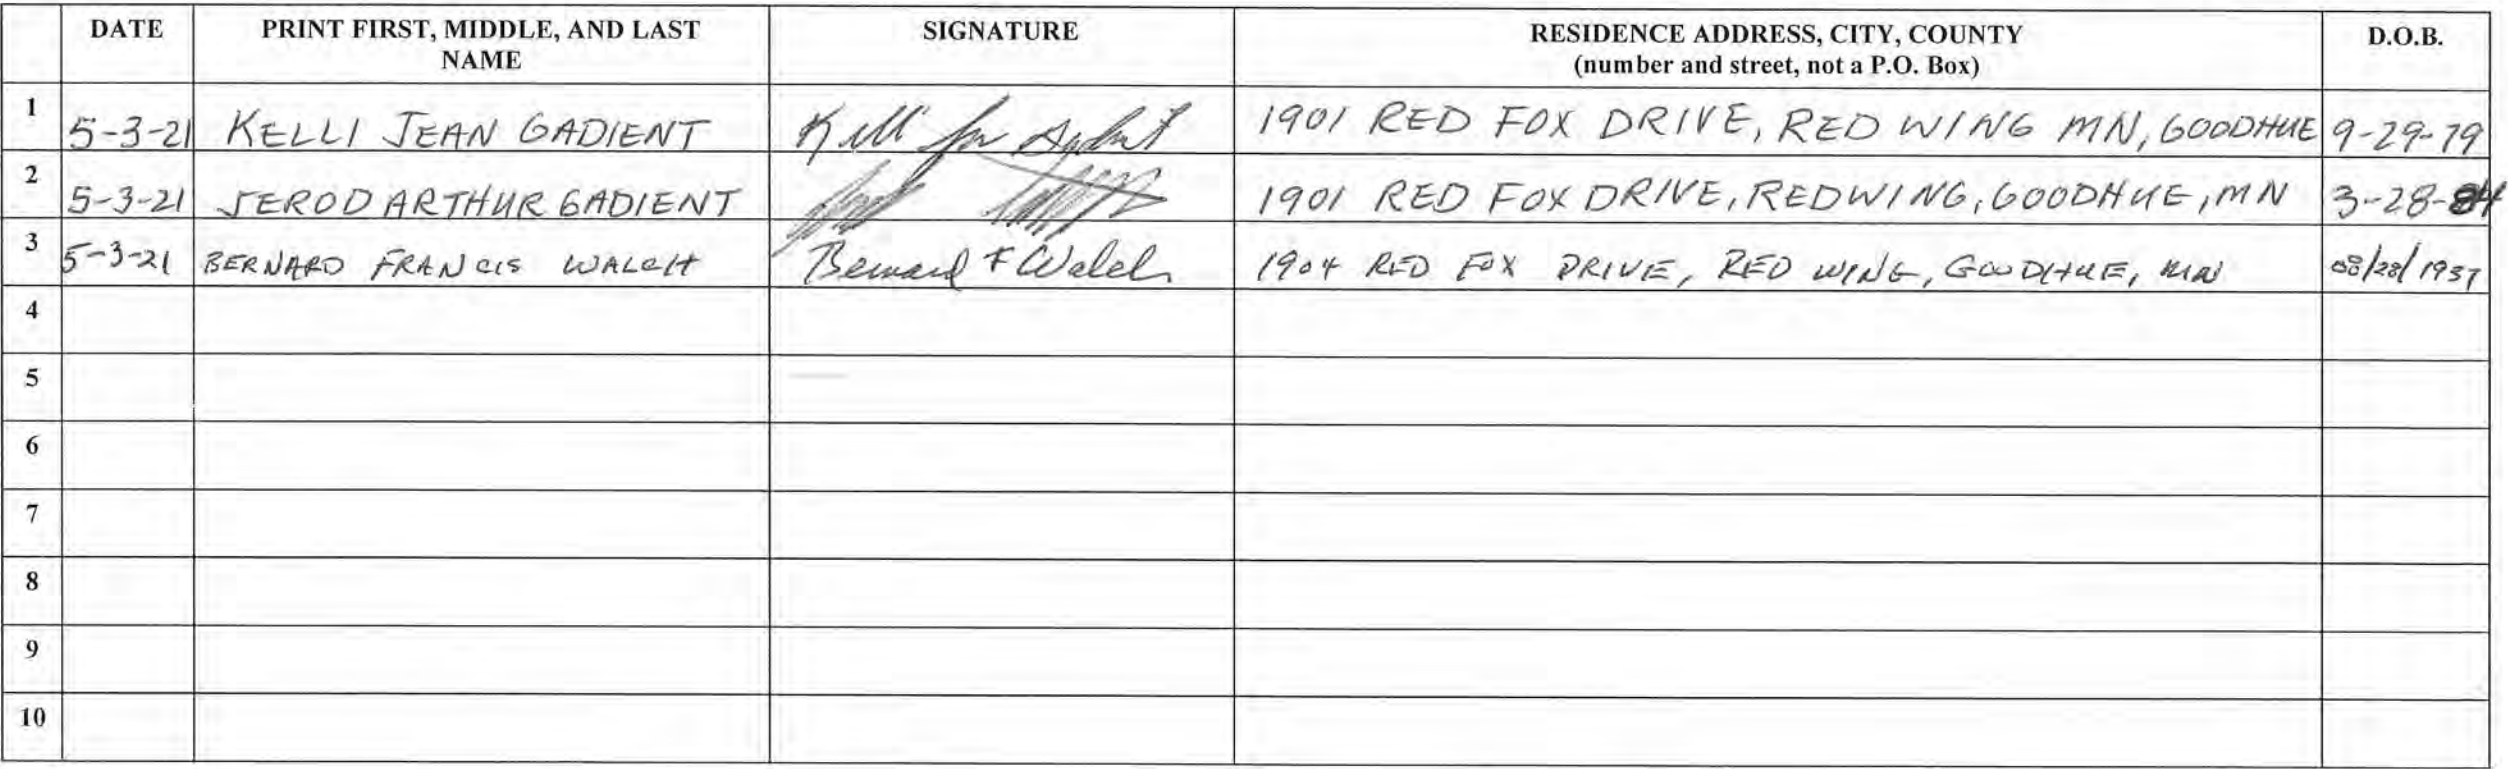 DATE PRINT FIRST, MIDDLE, AND LAST NAME SIGNATURE RESIDENCE ADDRESS, CITY, COUNTY (number and street, not a P.O. Box) D.O.B.
1 5-3-21 KELLI JEAN GADIENT 1901 RED FOX DRIVE, RED WING MN, GOODHUE 9-29-79
2 5-3-21 JEROD ARTHUR GADIENT 1901 RED FOX DRIVE, REDWING, GOODHUE, MN 3-28-84
3 5-3-21 BERNARD FRANCIS WALCH Bernard F Walch 1904 RED FOX DRIVE, RED WING, GOODHUE, MN 08/28/1937
4
5
6
7
8
9
10